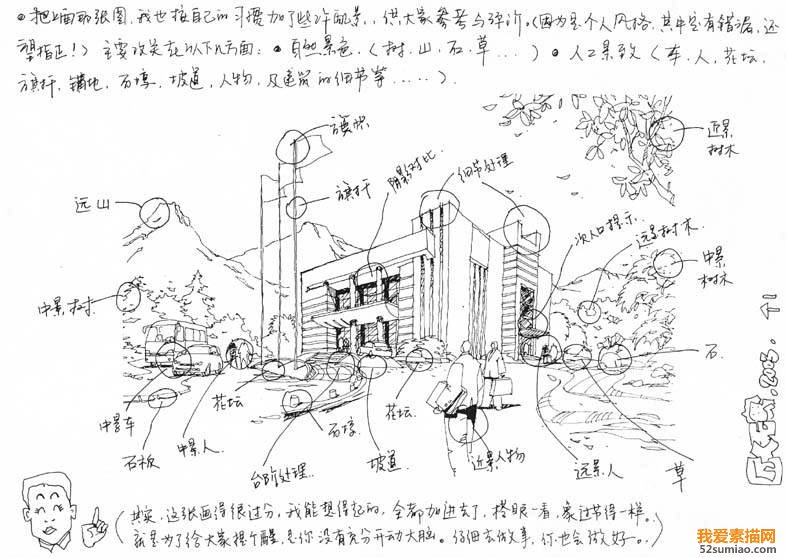 把上面那张图,我也按自己的习惯加了些许配景,供大家参考与弹讲。(因为是个人风格,其中定有错漏,还
望指正!)主要改装在以下几方面:•自然景色,(树.山,石.草...)•人工景致(车,人,花坛.
旗杆,铺地,石墩,坡道,人物,及建筑的细节等......).
旗帜
近景
树木
阴影对比
细节处理
旗杆
远山
次入口提示.
远景树木.
中景
树木
中景树.
石.
中景车
石板
中景人
花坛
石墩
台阶处理
坡道
花坛.
近景人物
远景人
草
2003.
(其实,这张画得很过分,我能想得起的,全都加进去了,搭眼一看,象过节得一样。
就是为了给大家提个醒,是你没有充分开动大脑。仔细去做事,你也会做好~。)
我爱素描网
52sumiao.com